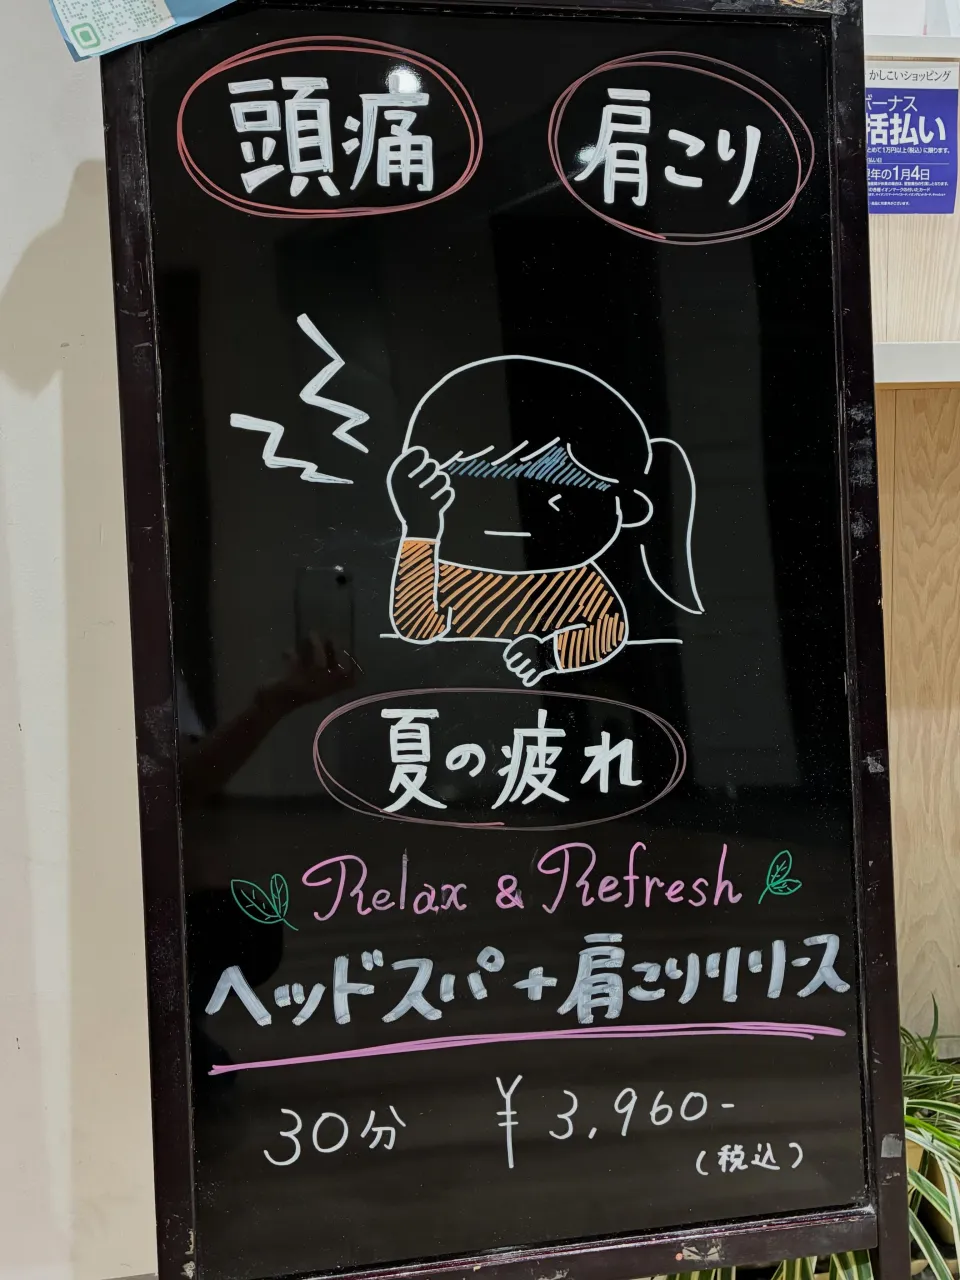 頭痛
肩こり
夏の疲れ
Relax & Refresh
ヘッドスパ+肩こりリリース
30分 ¥3,960-
(税込)
かしこいショッピング
ボーナス
括払い
年の1月4日